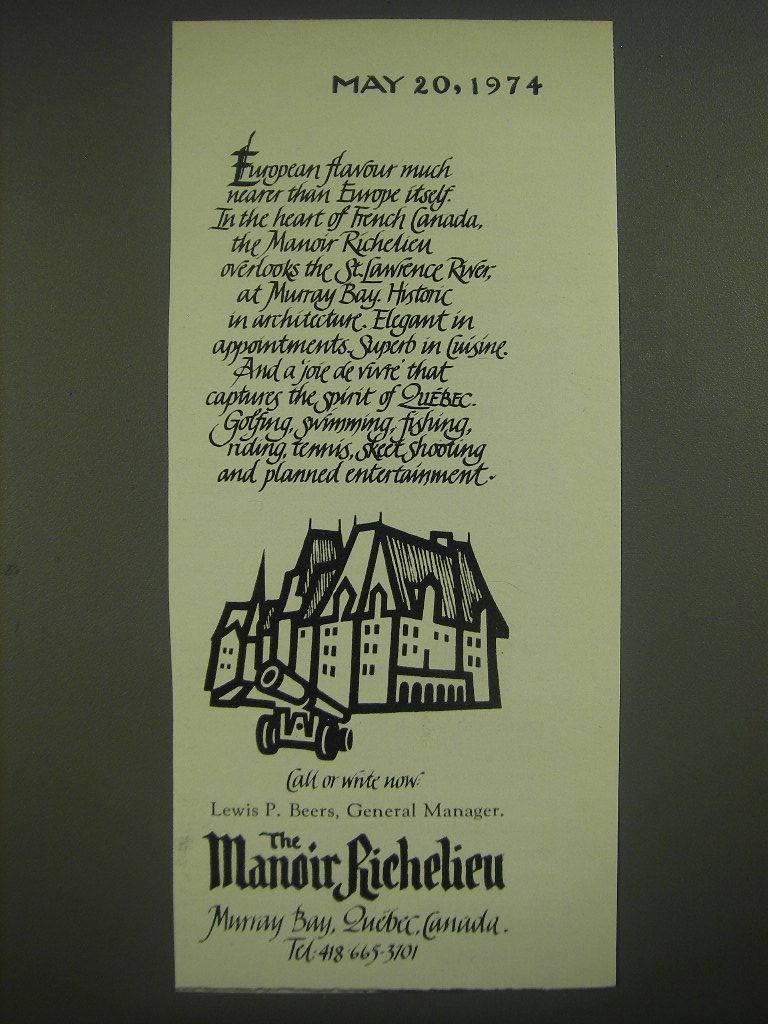 MAY 20, 1974
European flavour much
nearer than Europe itself.
In the heart of French Canada,
the Manoir Richelieu
overlooks the St. Lawrence River,
at Murray Bay. Historic
in architecture. Elegant in
appointments. Superb in Cuisine.
And a 'joie de vivre' that
captures the spirit of QUÉBEC.
Golfing, swimming, fishing,
riding, tennis, skeet shooting
and planned entertainment.
Call or write now:
Lewis P. Beers, General Manager.
The
Manoir Richelieu
Murray Bay, Québec, Canada.
Tel: 418-665-3701